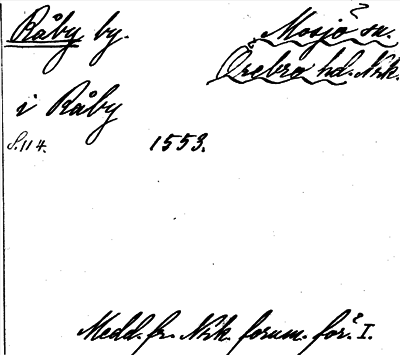 Råby by.
Mosjö sn.
Örebro hd. Nrk.
i Råby
S. 114. 1553.
Medd. fr. Nrk. fornm. för. I.